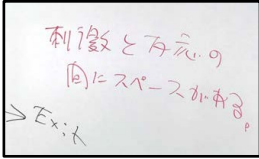 刺激と反応の
間にスペースがある。
> Exit